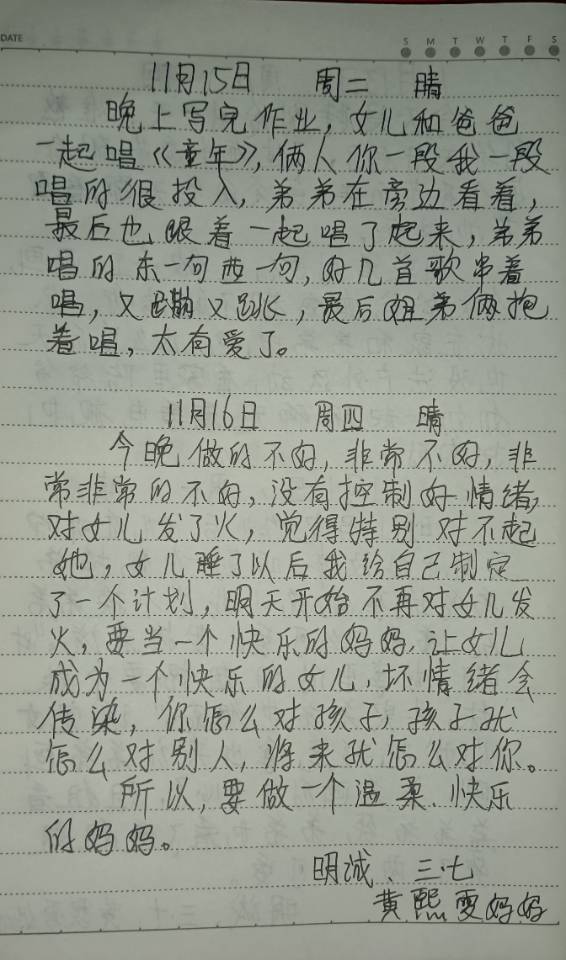 DATE
S M T W T F S
11月15日 周二 晴
晚上写完作业,女儿和爸爸
一起唱《童年》,俩人你一段我一段
唱的很投入,弟弟在旁边看着,
最后也跟着一起唱了起来,弟弟
唱的东一句西一句,好几首歌串着
唱,又蹦又跳,最后姐弟俩抱
着唱,太有爱了。
11月16日 周四 晴
今晚做的不好,非常不好,非
常非常的不好,没有控制好情绪,
对女儿发了火,觉得特别对不起
她,女儿睡了以后我给自己制定
了一个计划,明天开始不再对女儿发
火,要当一个快乐的妈妈,让女儿
成为一个快乐的女儿,坏情绪会
传染,你怎么对孩子,孩子就
怎么对别人,将来就怎么对你。
所以,要做一个温柔、快乐
的妈妈。
明诚、三七
黄熙雯妈妈